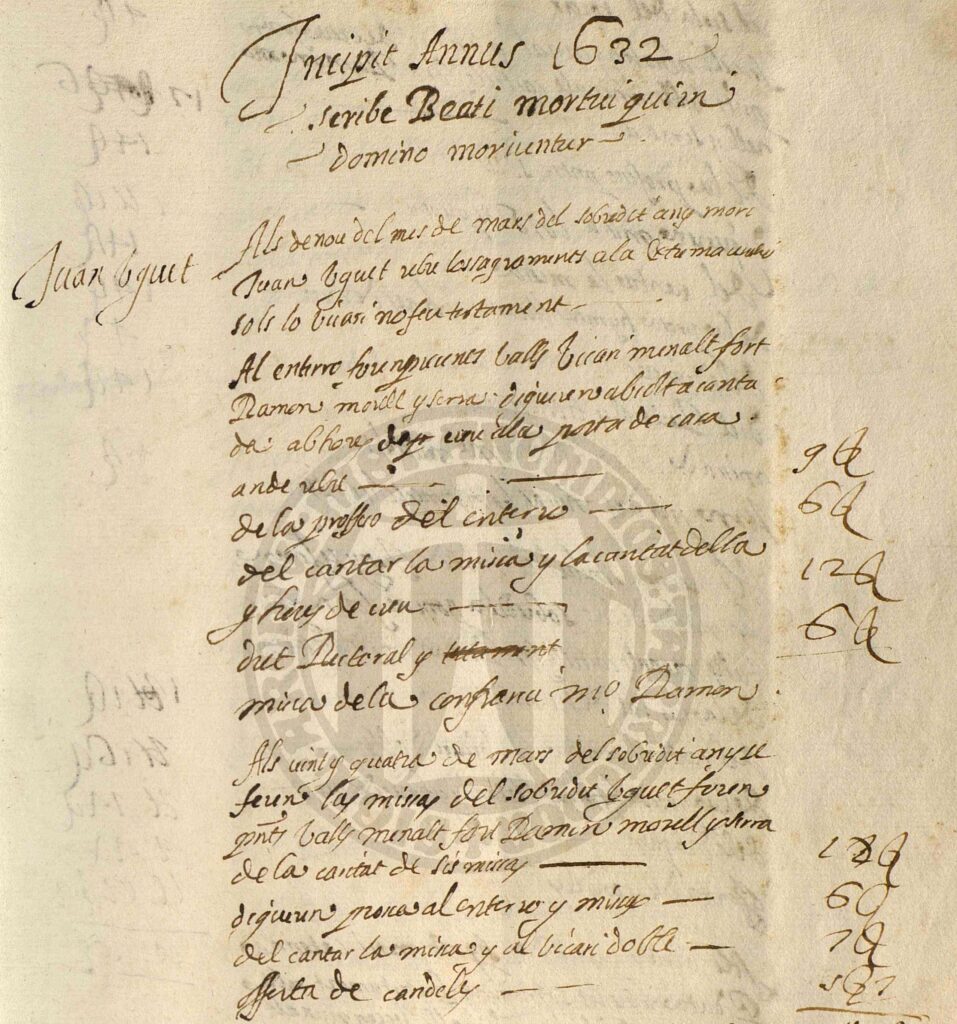 Incipit Annus 1632
scribe Beati mortui qui in
domino moriuntur
Juan Uguet
Als de nou del mes de mars del sobredit any mori
Juan Uguet rebe los sagraments a la
sols lo vicari no feu testament
Al enterro foren presents Valls Vicari menalt fort
Ramon morell y serra digueren absolta canta
da ab hores creu a la porta de casa
ande rebe
9
de la proffeso del enterro
6
del cantar la missa y la caritat della
12
y hores de creu
6
dret Rectoral y
missa de la confraria mo Ramon
Als vint y quatra de mars del sobredit any se
feren las missas del sobredit Uguet foren
pnts Valls menalt fort Ramon morell y serra
de la caritat de sis missas
digueren prosa al enterro y missas
6
del cantar la missa y al vicari doble
7
fferta de candeles